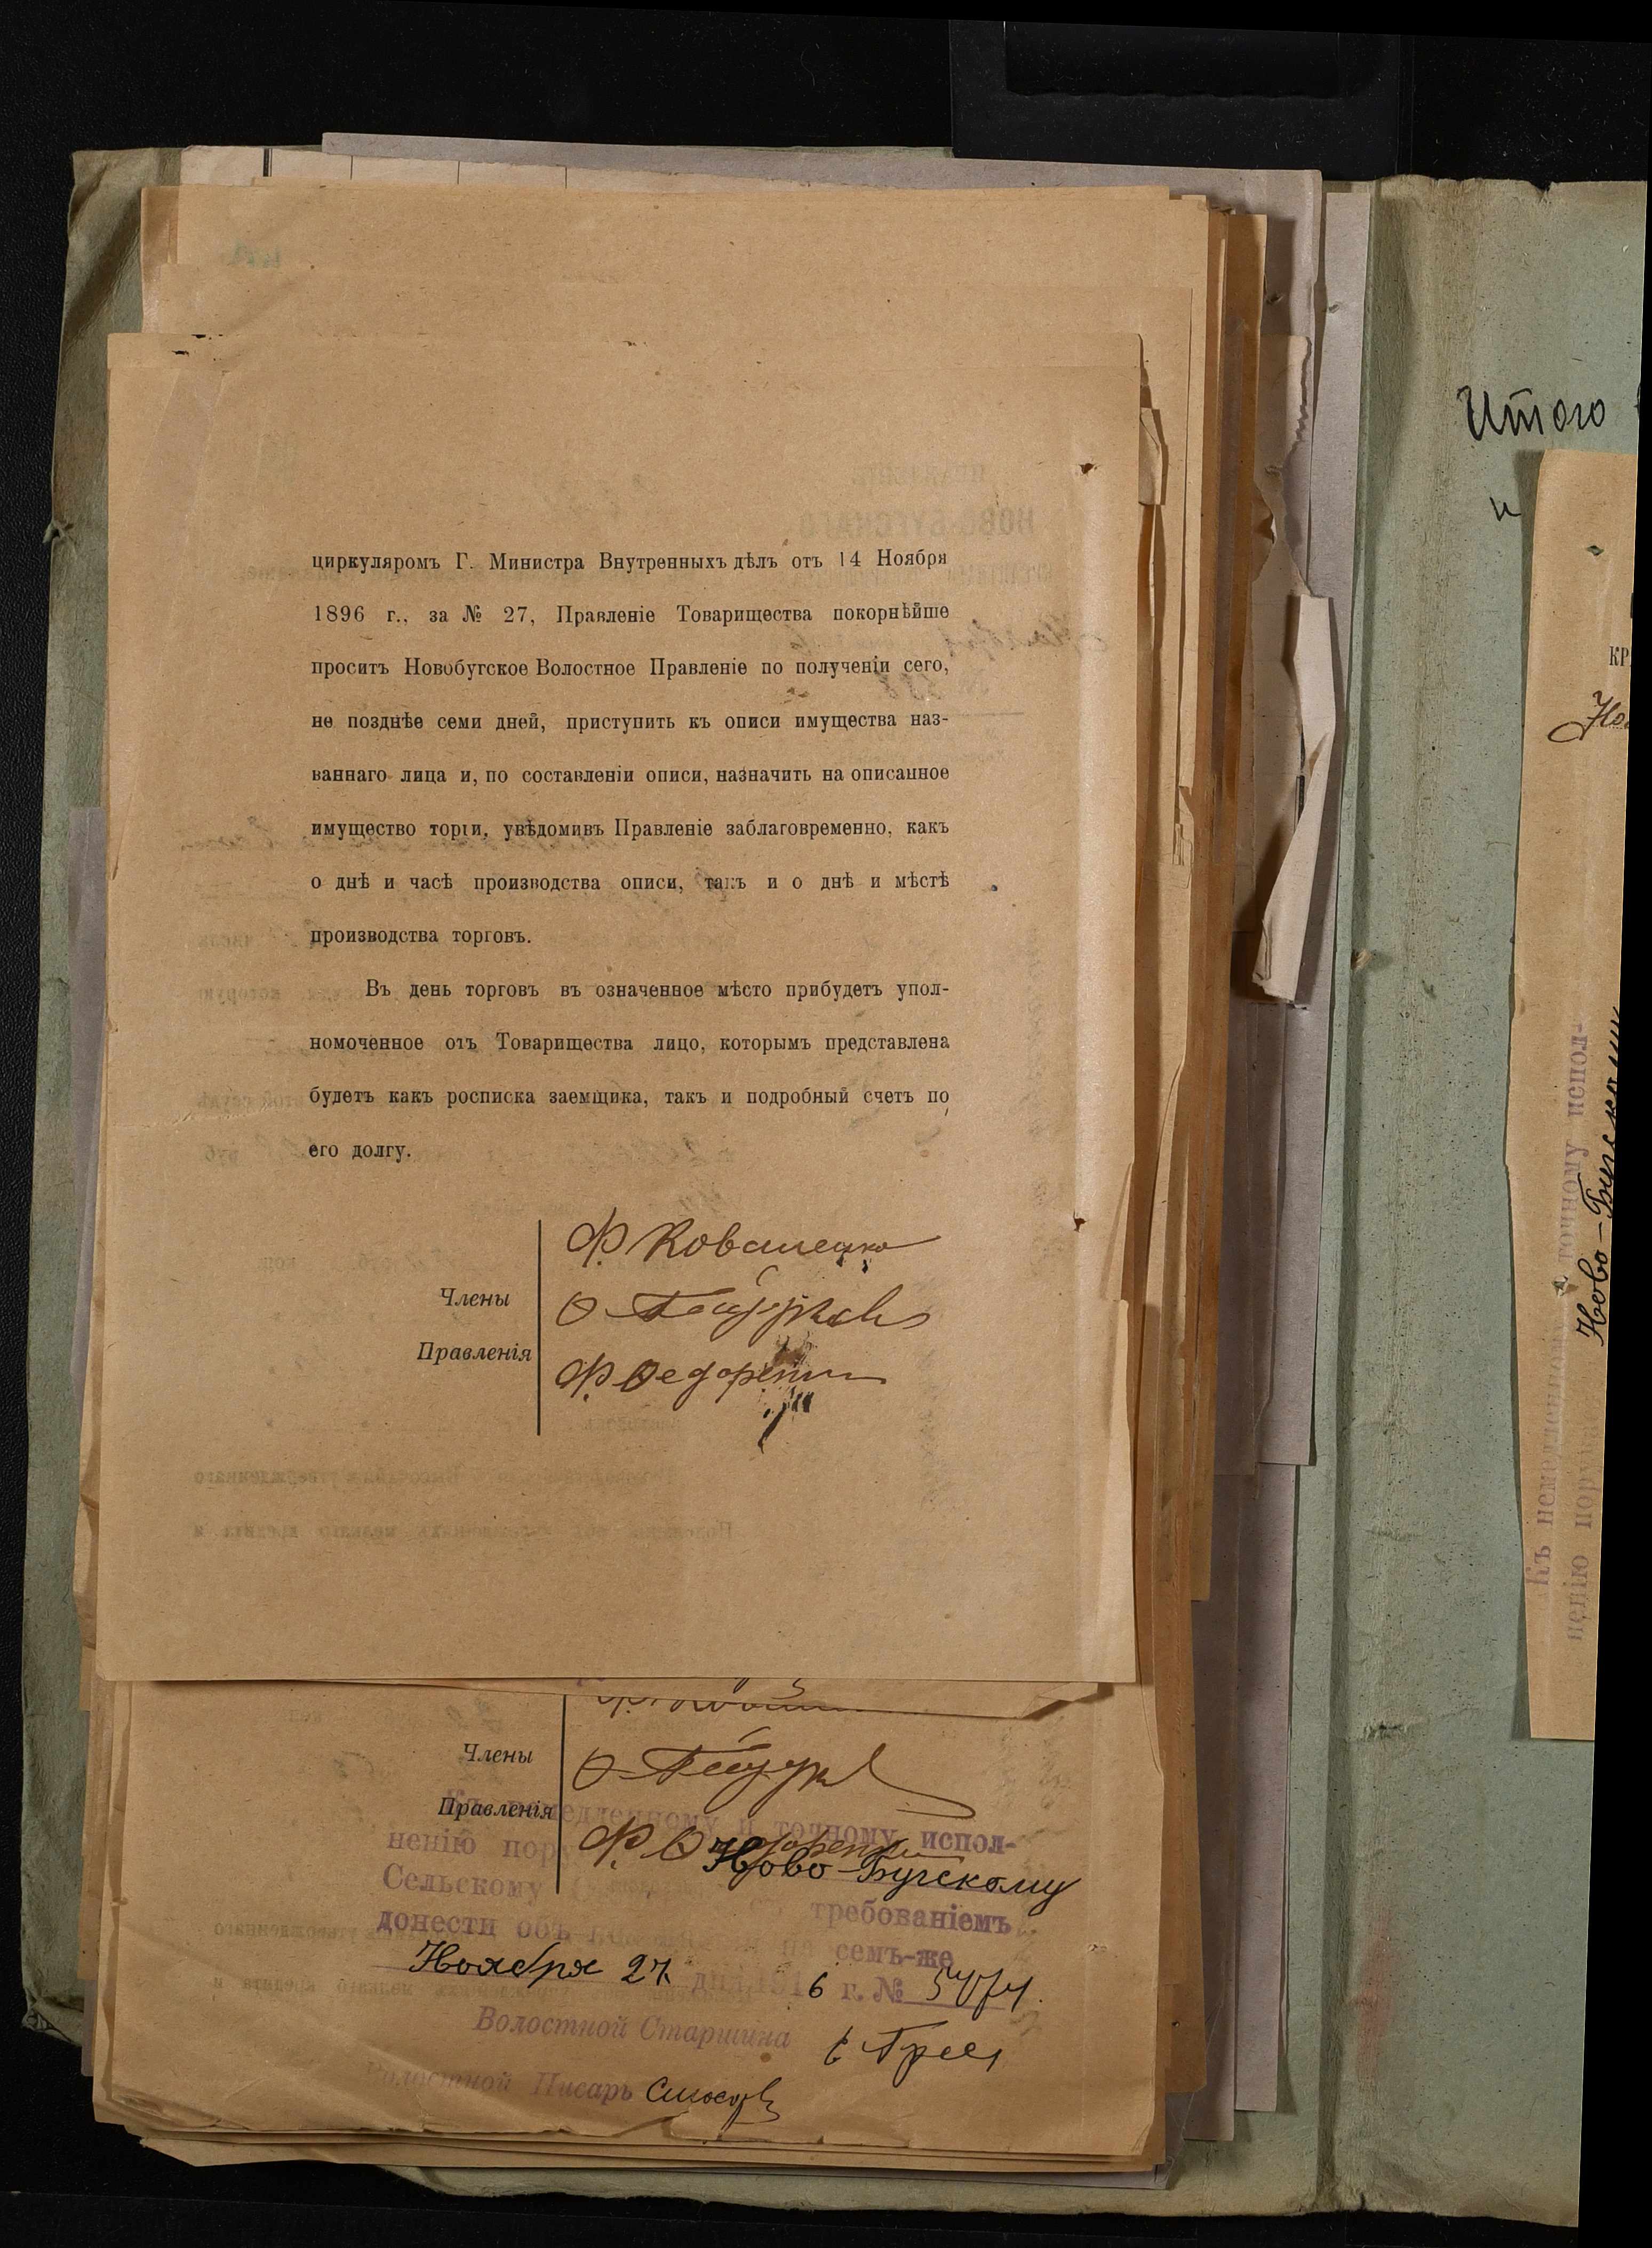 циркуляромъ Г. Министра Внутренныхъ дѣлъ отъ 14 Ноября
1896 г., за № 27, Правленіе Товарищества покорнѣйше
проситъ Новобугское Волостное Правленіе по полученіи сего,
не позднѣе семи дней, приступить къ описи имущества наз-
ваннаго лица и, по составленіи описи, назначить на описанное
имущество торги, увѣдомивъ Правленіе заблаговременно, какъ
о днѣ и часѣ производства описи, такъ и о днѣ и мѣстѣ
производства торговъ.
Въ день торговъ въ означенное мѣсто прибудетъ упол-
номоченное отъ Товарищества лицо, которымъ представлена
будетъ какъ росписка заемщика, такъ и подробный счетъ по
его долгу.
Ф. Коваленко
Члены
Правленія
Члены
Правленія
Къ немедленному и точному испол-
ненію
Ново-Бугскому
Сельскому
требованіемъ
донести объ
семъ-же
Ноября 27 дня 1916 г. №
Волостной Старшина
Волостной Писарь
Итого
и
КР
Но
Къ немедленному и точному испол-
ненію
Ново-Бугскому